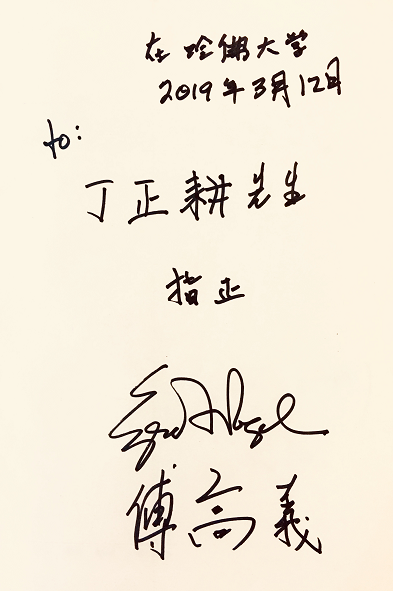 在哈佛大学
2019年3月12日
to:
丁正耕先生
指正
Ezra F. Vogel
傅高義